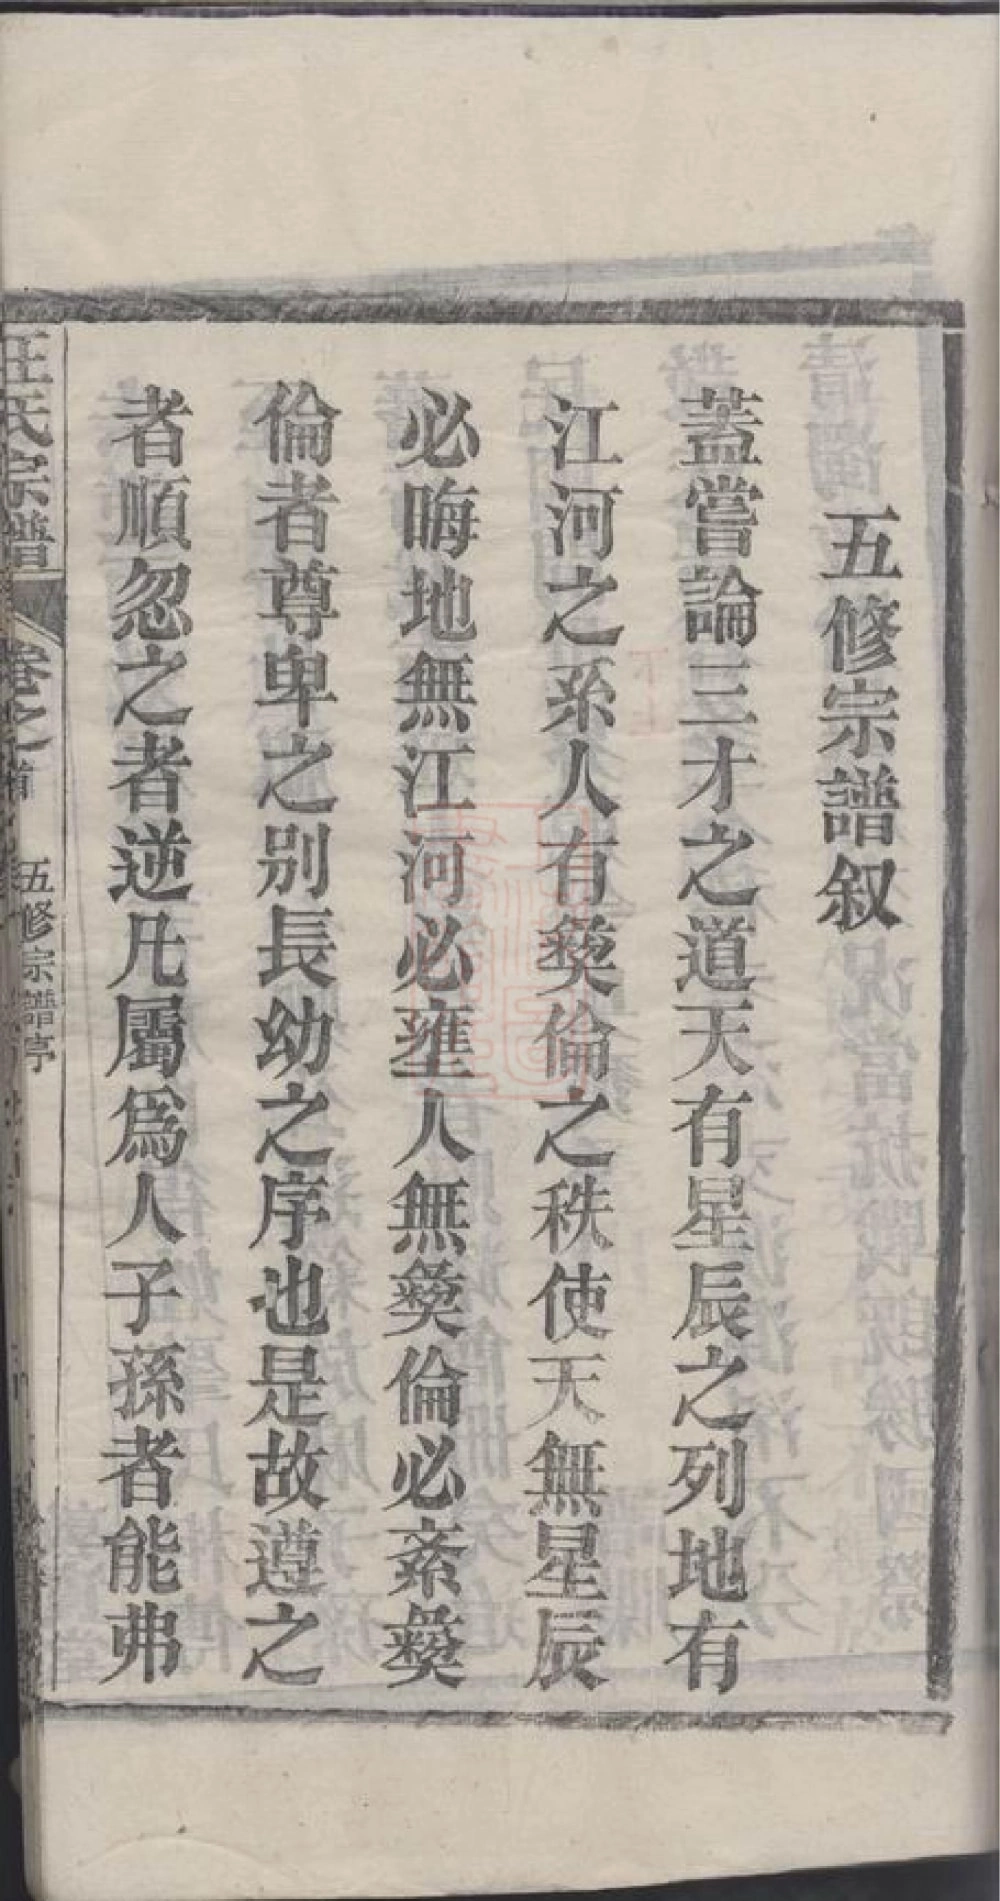 五修宗譜叙
蓋嘗論三才之道天有星辰之列地有
江河之系人有彜倫之秩使天無星辰
必晦地無江河必壅人無彜倫必紊彜
倫者尊卑之别長幼之序也是故遵之
者順忽之者逆凡屬爲人子孫者能弗
汪氏宗譜 卷之首 五修宗譜亭